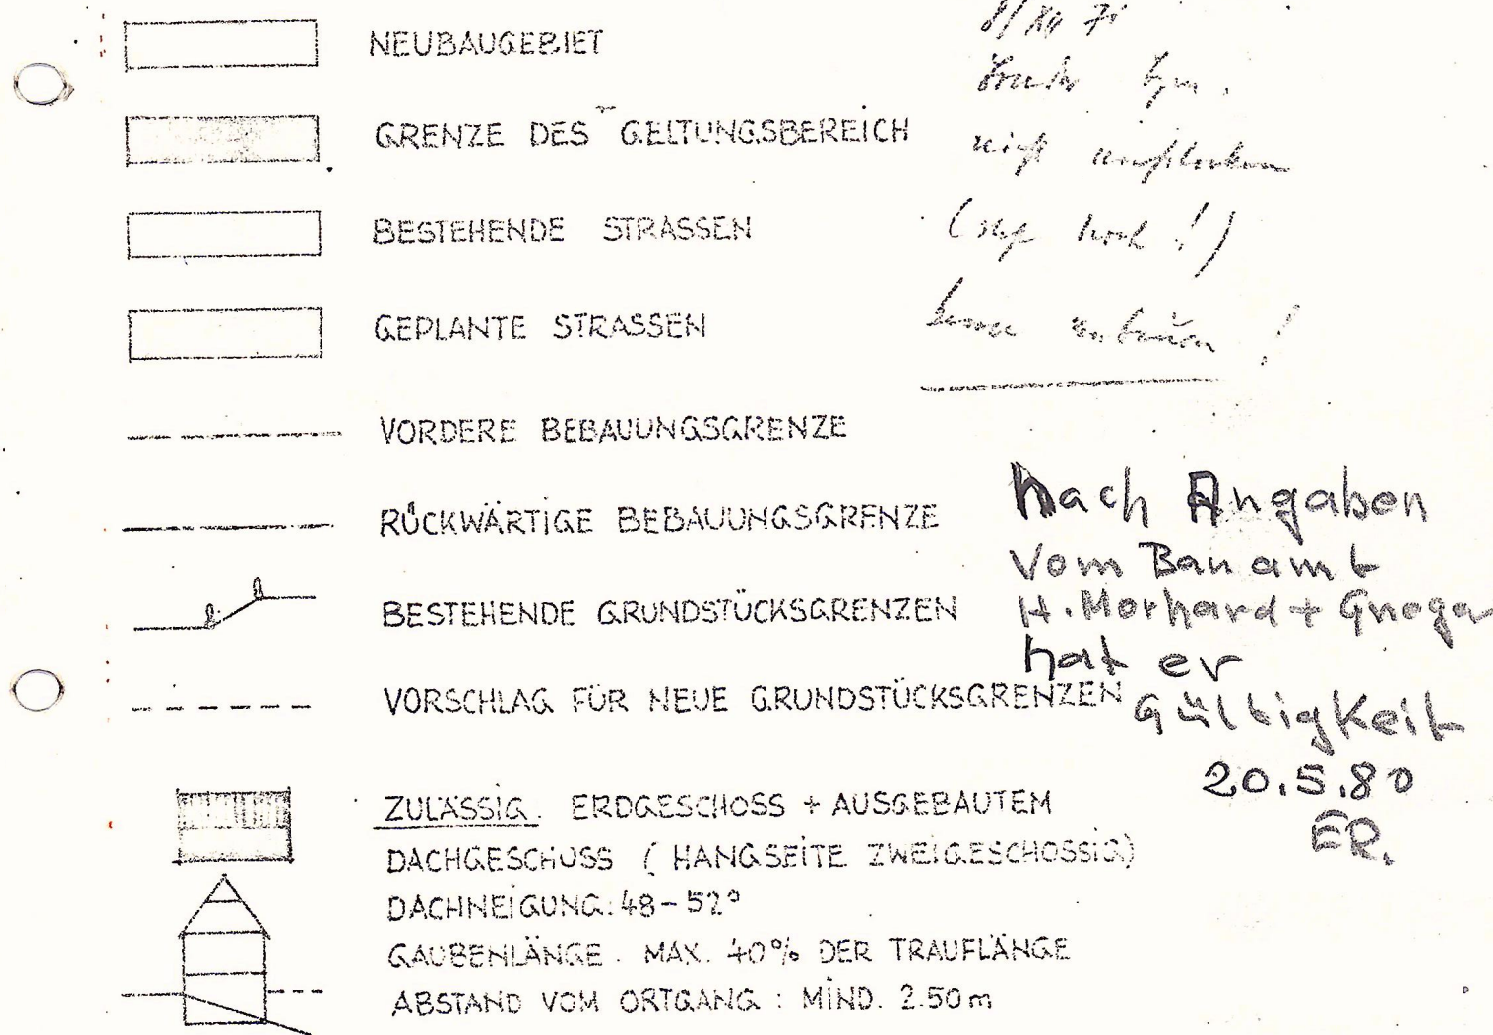 NEUBAUGEBIET
GRENZE DES GELTUNGSBEREICH
BESTEHENDE STRASSEN
GEPLANTE STRASSEN
VORDERE BEBAUUNGSGRENZE
RÜCKWÄRTIGE BEBAUUNGSGRENZE
BESTEHENDE GRUNDSTÜCKSGRENZEN
VORSCHLAG FÜR NEUE GRUNDSTÜCKSGRENZEN
ZULÄSSIG. ERDGESCHOSS + AUSGEBAUTEM
DACHGESCHOSS (HANGSEITE ZWEIGESCHOSSIG)
DACHNEIGUNG: 48-52°
GAUBENLÄNGE. MAX. 40% DER TRAUFLÄNGE
ABSTAND VOM ORTGANG : MIND. 2.50m
nicht
noch !)
!
Nach Angaben
vom Bauamt
H. Morhard +
hat er
Gültigkeit
20.5.80
ER.